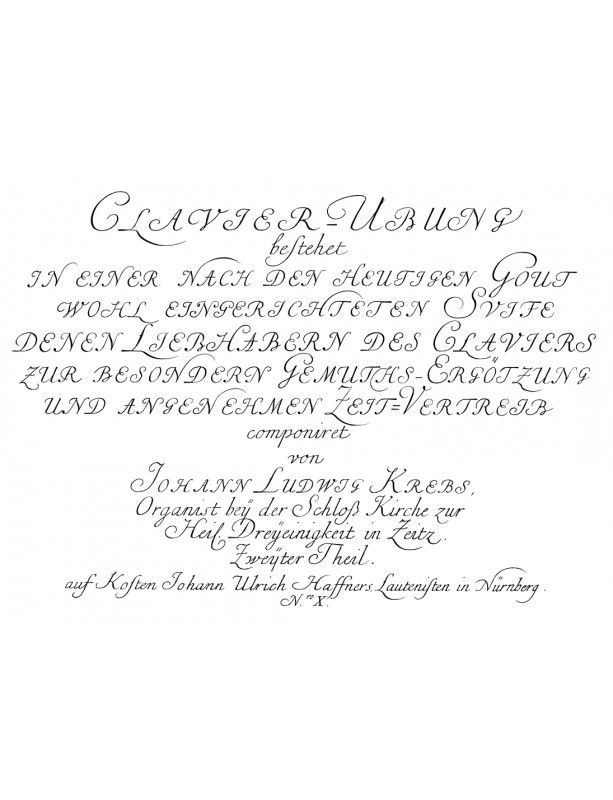 CLAVIER-UBUNG
bestehet
IN EINER NACH DEN HEUTIGEN GOUT
WOHL EINGERICHTETEN SVITE
DENEN LIEBHABERN DES CLAVIERS
ZUR BESONDERN GEMUTHS-ERGÖTZUNG
UND ANGENEHMEN ZEIT=VERTREIB
componiret
von
JOHANN LUDWIG KREBS,
Organist beÿ der Schloß Kirche zur
Heil. Dreÿeinigkeit in Zeitz.
Zweÿter Theil.
auf Kosten Johann Ulrich Haffners, Lautenisten in Nürnberg.
N.ro X.